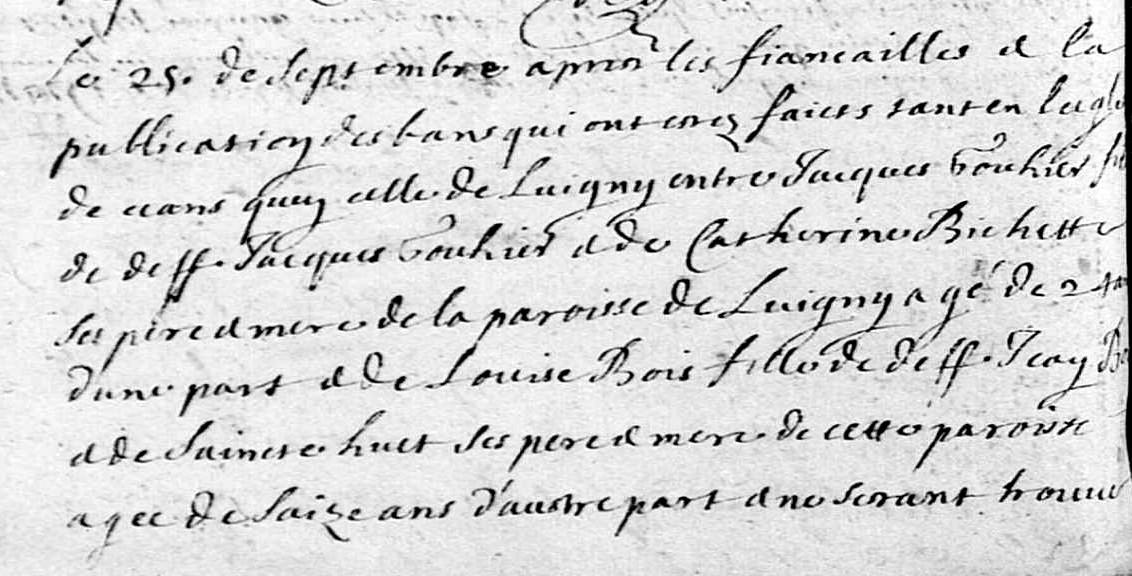 Le 25. de Septembre apres les fiancailles et la
publication des bans qui ont estez faicts tant en leegl
de ceans quen celle de Luigny entre Jacques Gouhier fil
de deff. Jacques Gouhier et de Catherine Bichette
ses pere et mere de la paroisse de Luigny agé de 24 an
dune part et de Louise Bois fille de deff. Jean B
et de Saincte huet ses pere et mere de cette paroisse
agee de saize ans d'austre part et ne sorant trouue